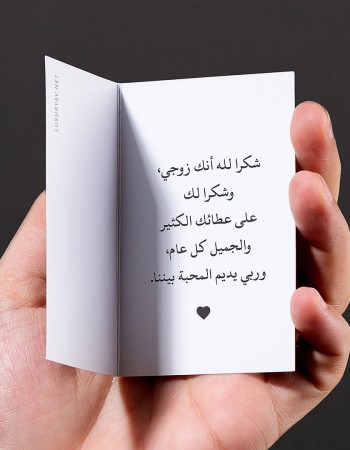 شكرا لله أنك زوجي،
وشكرا لك
على عطائك الكثير
والجميل كل عام،
وربي يديم المحبة بيننا.